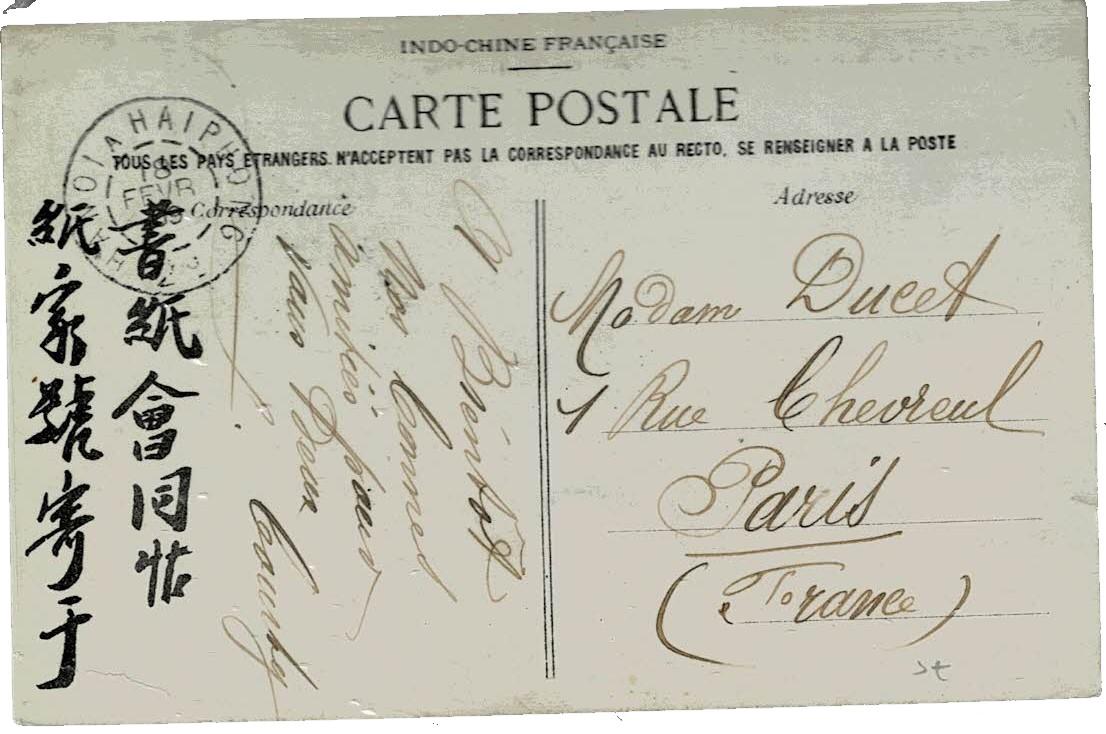 INDO-CHINE FRANÇAISE
CARTE POSTALE
TOUS LES PAYS ETRANGERS N'ACCEPTENT PAS LA CORRESPONDANCE AU RECTO, SE RENSEIGNER A LA POSTE
HANOI A HAIPHONG
18
FEVR
Correspondance
A Bientôt
Nos bonnes
amitiés pour
vous Deux
書紙會同帖
紙家號寄于
Adresse
Madam Ducet
1 Rue Chevreul
Paris
(France)